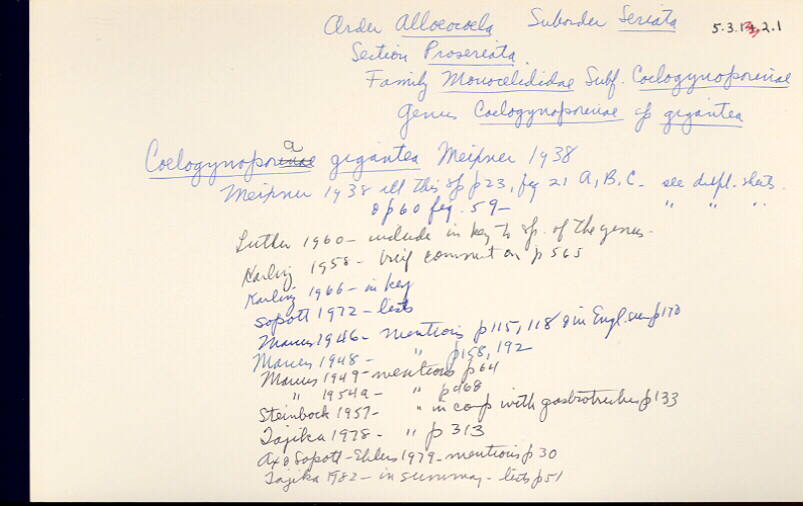 Order Alloeocoela Suborder Seriata 5.3.13,2.1
Section Proseriata
Family Monocelididae Subf. Coelogynoporinae
Genus Coelogynoporinae sp gigantea
Coelogynopora gigantea Meixner 1938
Meixner 1938 ill this sp p23, fig 21 A, B, C - see dupl. sheets.
& p60 fig. 59 - " " "
Luther 1960 - include in key to sp. of the genus -
Karling 1958 - brief comment on p 565
Karling 1966 - in key
Sopott 1972 - lists
Marcus 1946 - mentions p115, 118 & in Engl. sum p170
Marcus 1948 - " p158, 192
Marcus 1949 - mentions p64
" 1954a - " p 468
Steinböck 1957 - " in comp with gastrotriches p133
Tajika 1978 - " p 313
Ax & Sopott-Ehlers 1979 - mentions p 30
Tajika 1982 - in summary - lists p51